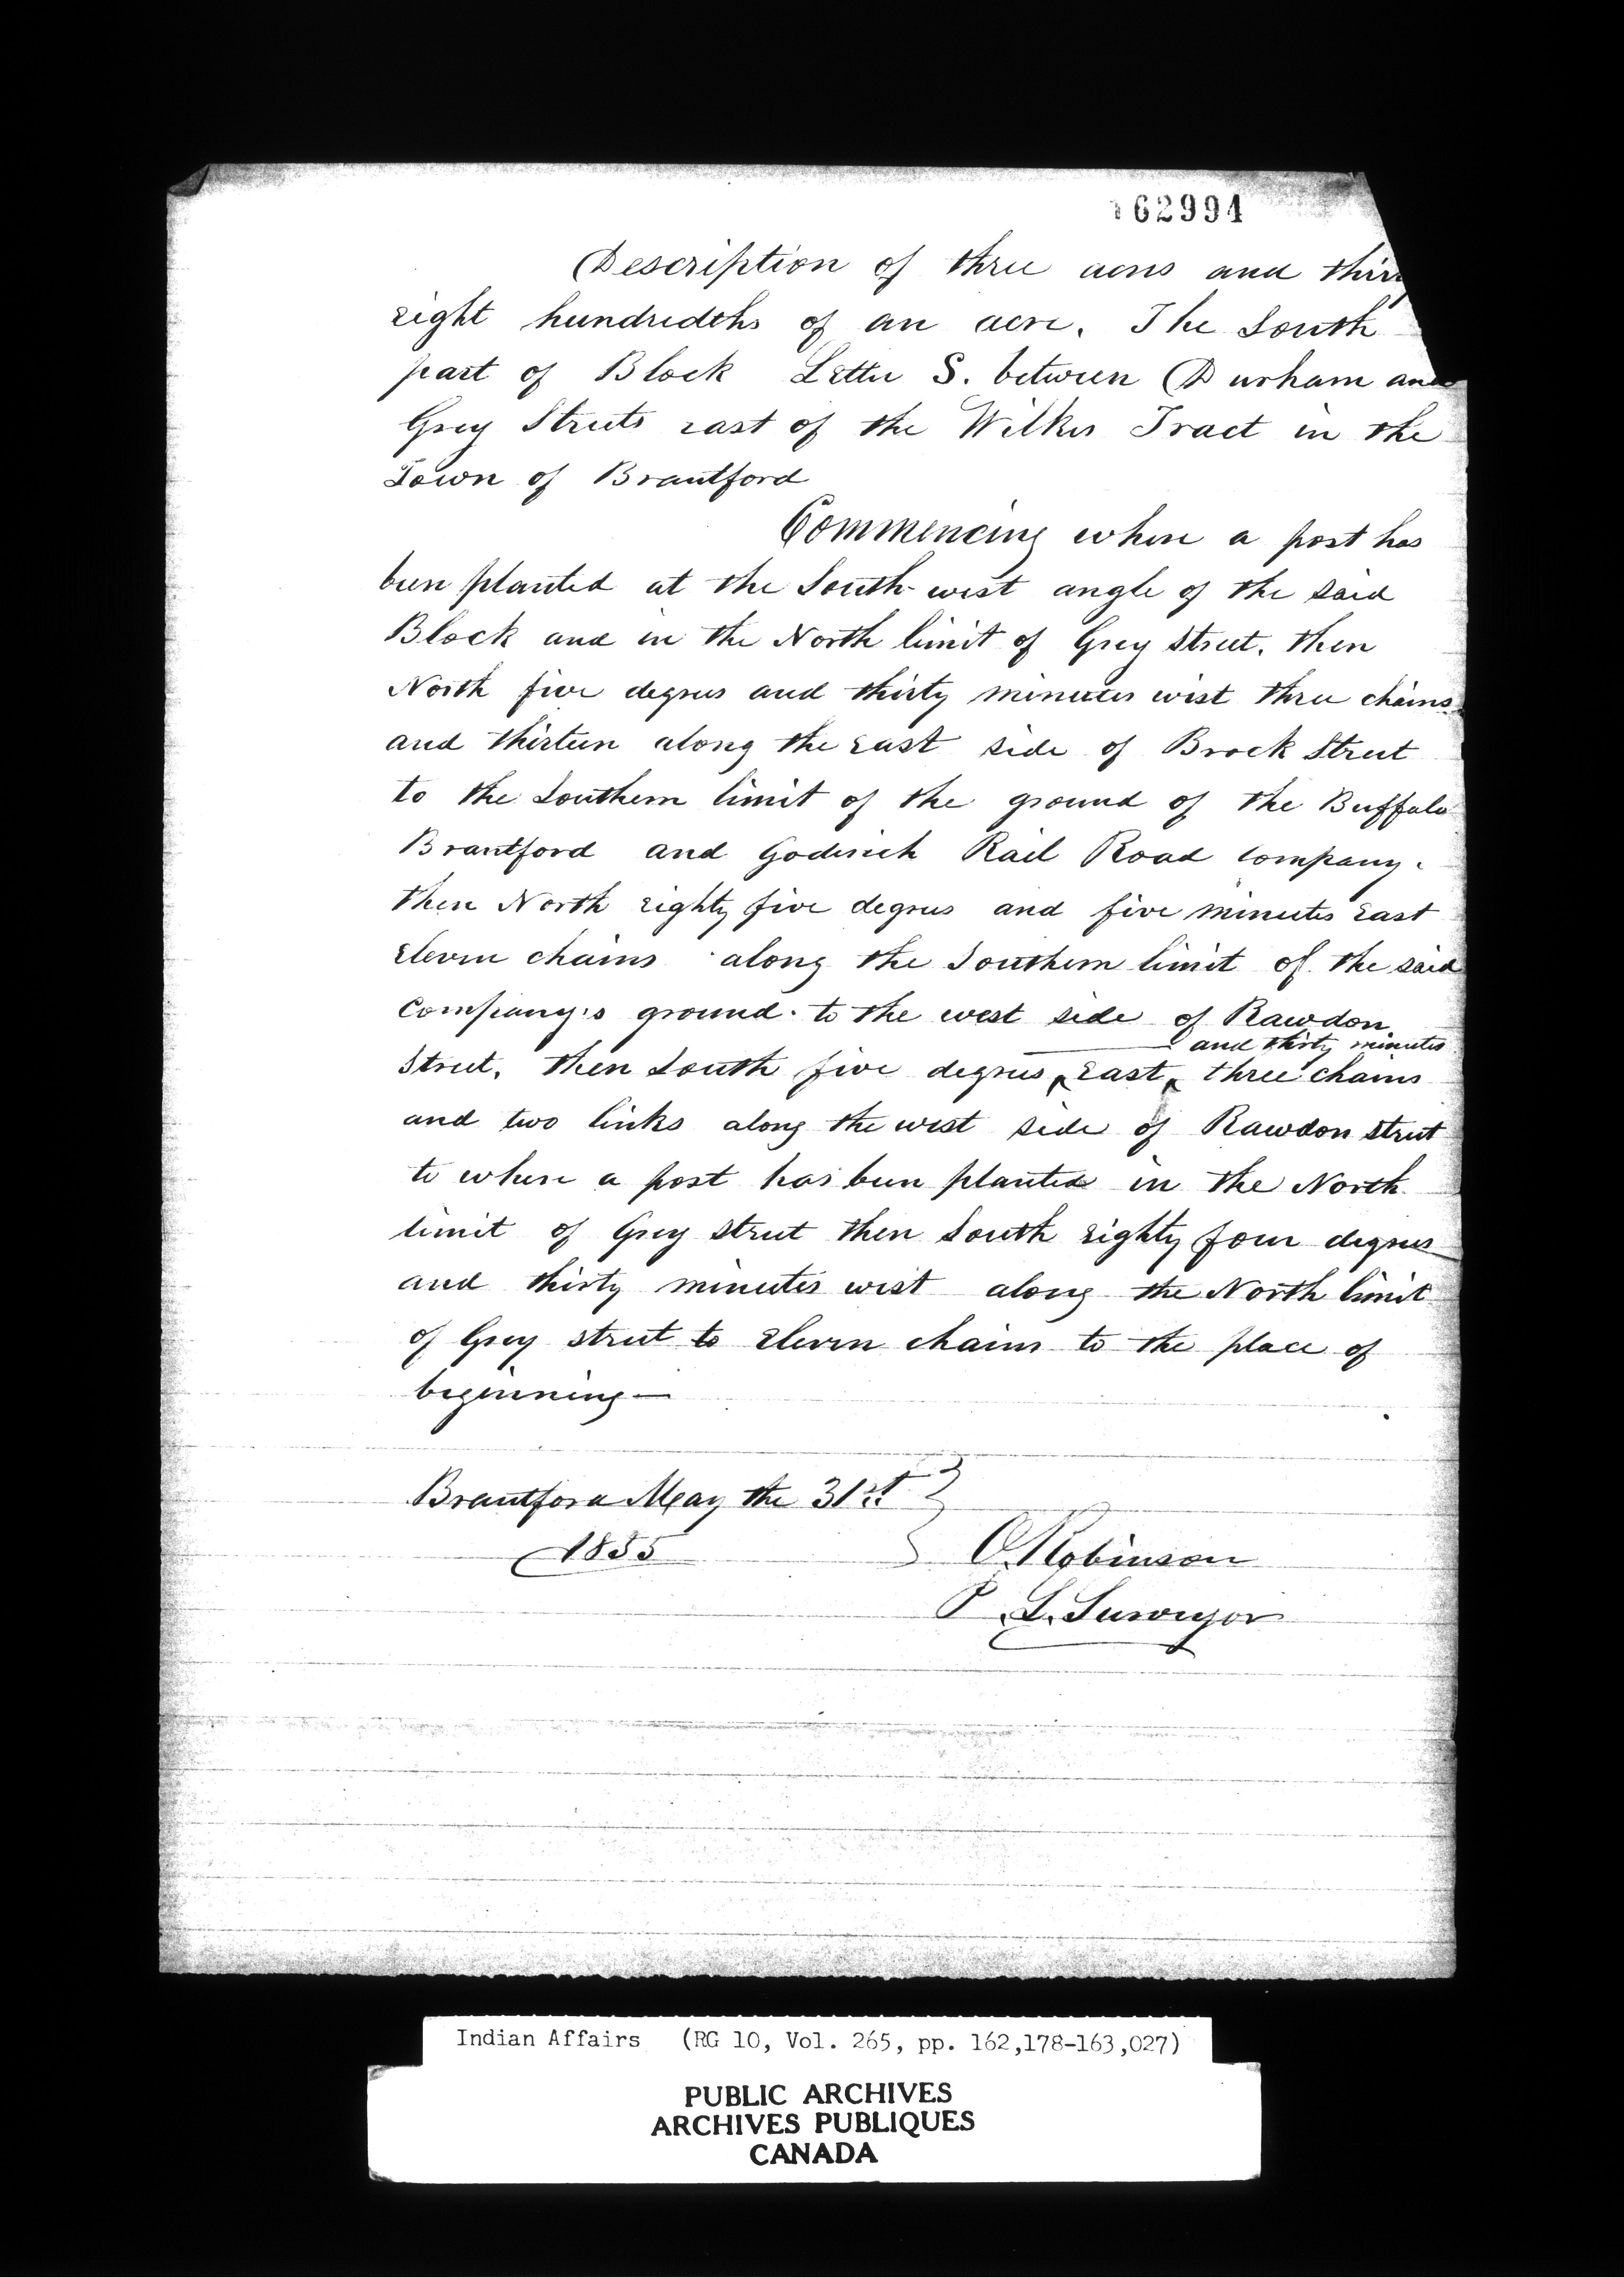 162994
Description of three acres and thirty
eight hundredths of an acre. The South
part of Block Letter S. between Durham and
Grey Streets east of the Wilkes Tract in the
Town of Brantford
Commencing where a post has
been planted at the South-west angle of the said
Block and in the North limit of Grey Street. then
North five degrees and thirty minutes west three chains
and thirteen along the East side of Brock Street
to the Southern limit of the ground of the Buffalo
Brantford and Goderich Rail Road Company.
then North eighty five degrees and five minutes East
Eleven chains along the Southern limit of the said
Company's ground. to the west side of Rawdon
and thirty minutes
Street, then South five degrees East three chains
and two links along the west side of Rawdon Street
to where a post has been planted in the North
limit of Grey street then South eighty four degrees
and thirty minutes west along the North limit
of Grey street to Eleven chains to the place of
beginning—
Brantford May the 31st
1855
O. Robinson
P. L. Surveyor
Indian Affairs (RG 10, Vol. 265, pp. 162,178-163,027)
PUBLIC ARCHIVES
ARCHIVES PUBLIQUES
CANADA